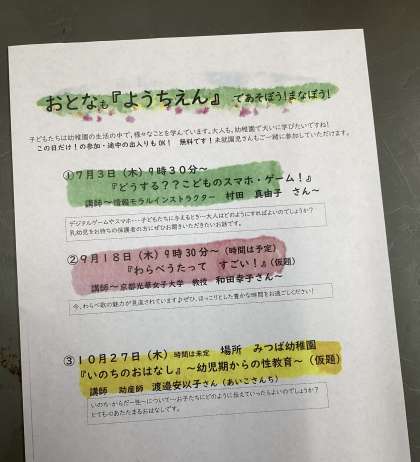 おとなも『ようちえん』 であそぼう!まなぼう!
子どもたちは幼稚園の生活の中で、様々なことを学んでいます。大人も、幼稚園で大いに学びたいですね!
この日だけ!の参加・途中の出入りもOK! 無料です!未就園児さんもご一緒に参加していただけます。
①7月3日(木)9時30分~
『どうする??こどものスマホ・ゲーム!』
講師~情報モラルインストラクター 村田 真由子 さん~
デジタルゲームやスマホ…子どもたちに与えるとき…大人はどのようにすればよいのでしょうか?
乳幼児をお持ちの保護者の方にぜひお聞きいただきたいお話です。
②9月18日(木)9時30分~(時間は予定)
『わらべうたって すごい!』(仮題)
講師~京都光華女子大学 教授 和田幸子さん~
今、わらべ歌の魅力が見直されています♪ぜひ、ほっこりとした豊かな時間をお過ごしください!
③10月27日(木)時間は未定 場所 みつば幼稚園
『いのちのおはなし』~幼児期からの性教育~(仮題)
講師 助産師 渡邉安以子さん(あいこさんち)
いのち・からだ・性~について…お子たちにどのように伝えていったらよいのでしょうか?
とてもあたたまるおはなしです。